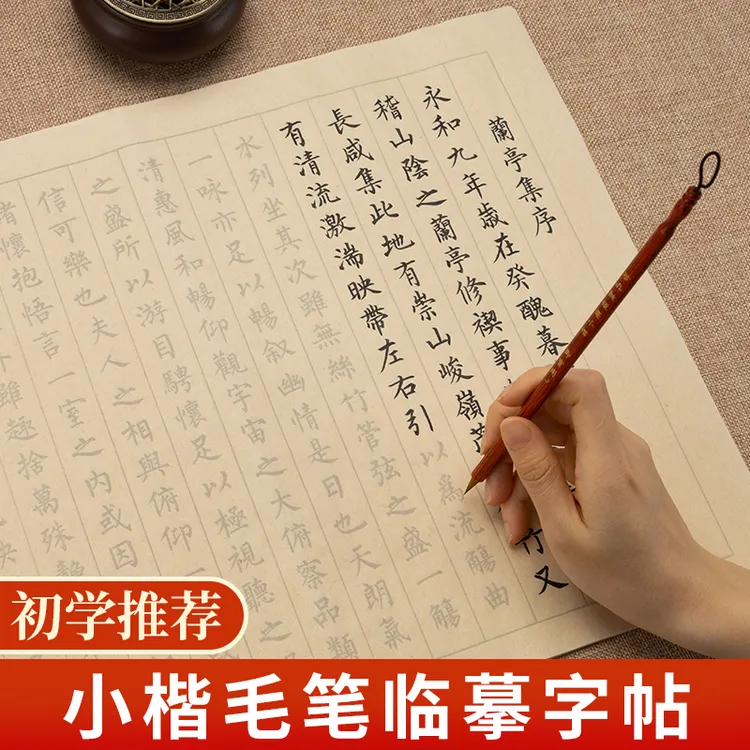 蘭亭集序
永和九年歲在癸醜暮
稽山陰之蘭亭修禊事
長咸集此地有崇山峻嶺茂 竹又
有清流激湍映帶左右引以為流觴曲
水列坐其次雖無絲竹管弦之盛一觴
一咏亦足以暢叙幽情是日也天朗氣
清惠風和暢仰觀宇宙之大俯察品類
之盛所以游目騁懷足以極視聽之
信可樂也夫人之相與俯仰一
懷抱悟言一室之内或因
雖趣捨萬殊
初学推荐
小楷毛笔临摹字帖